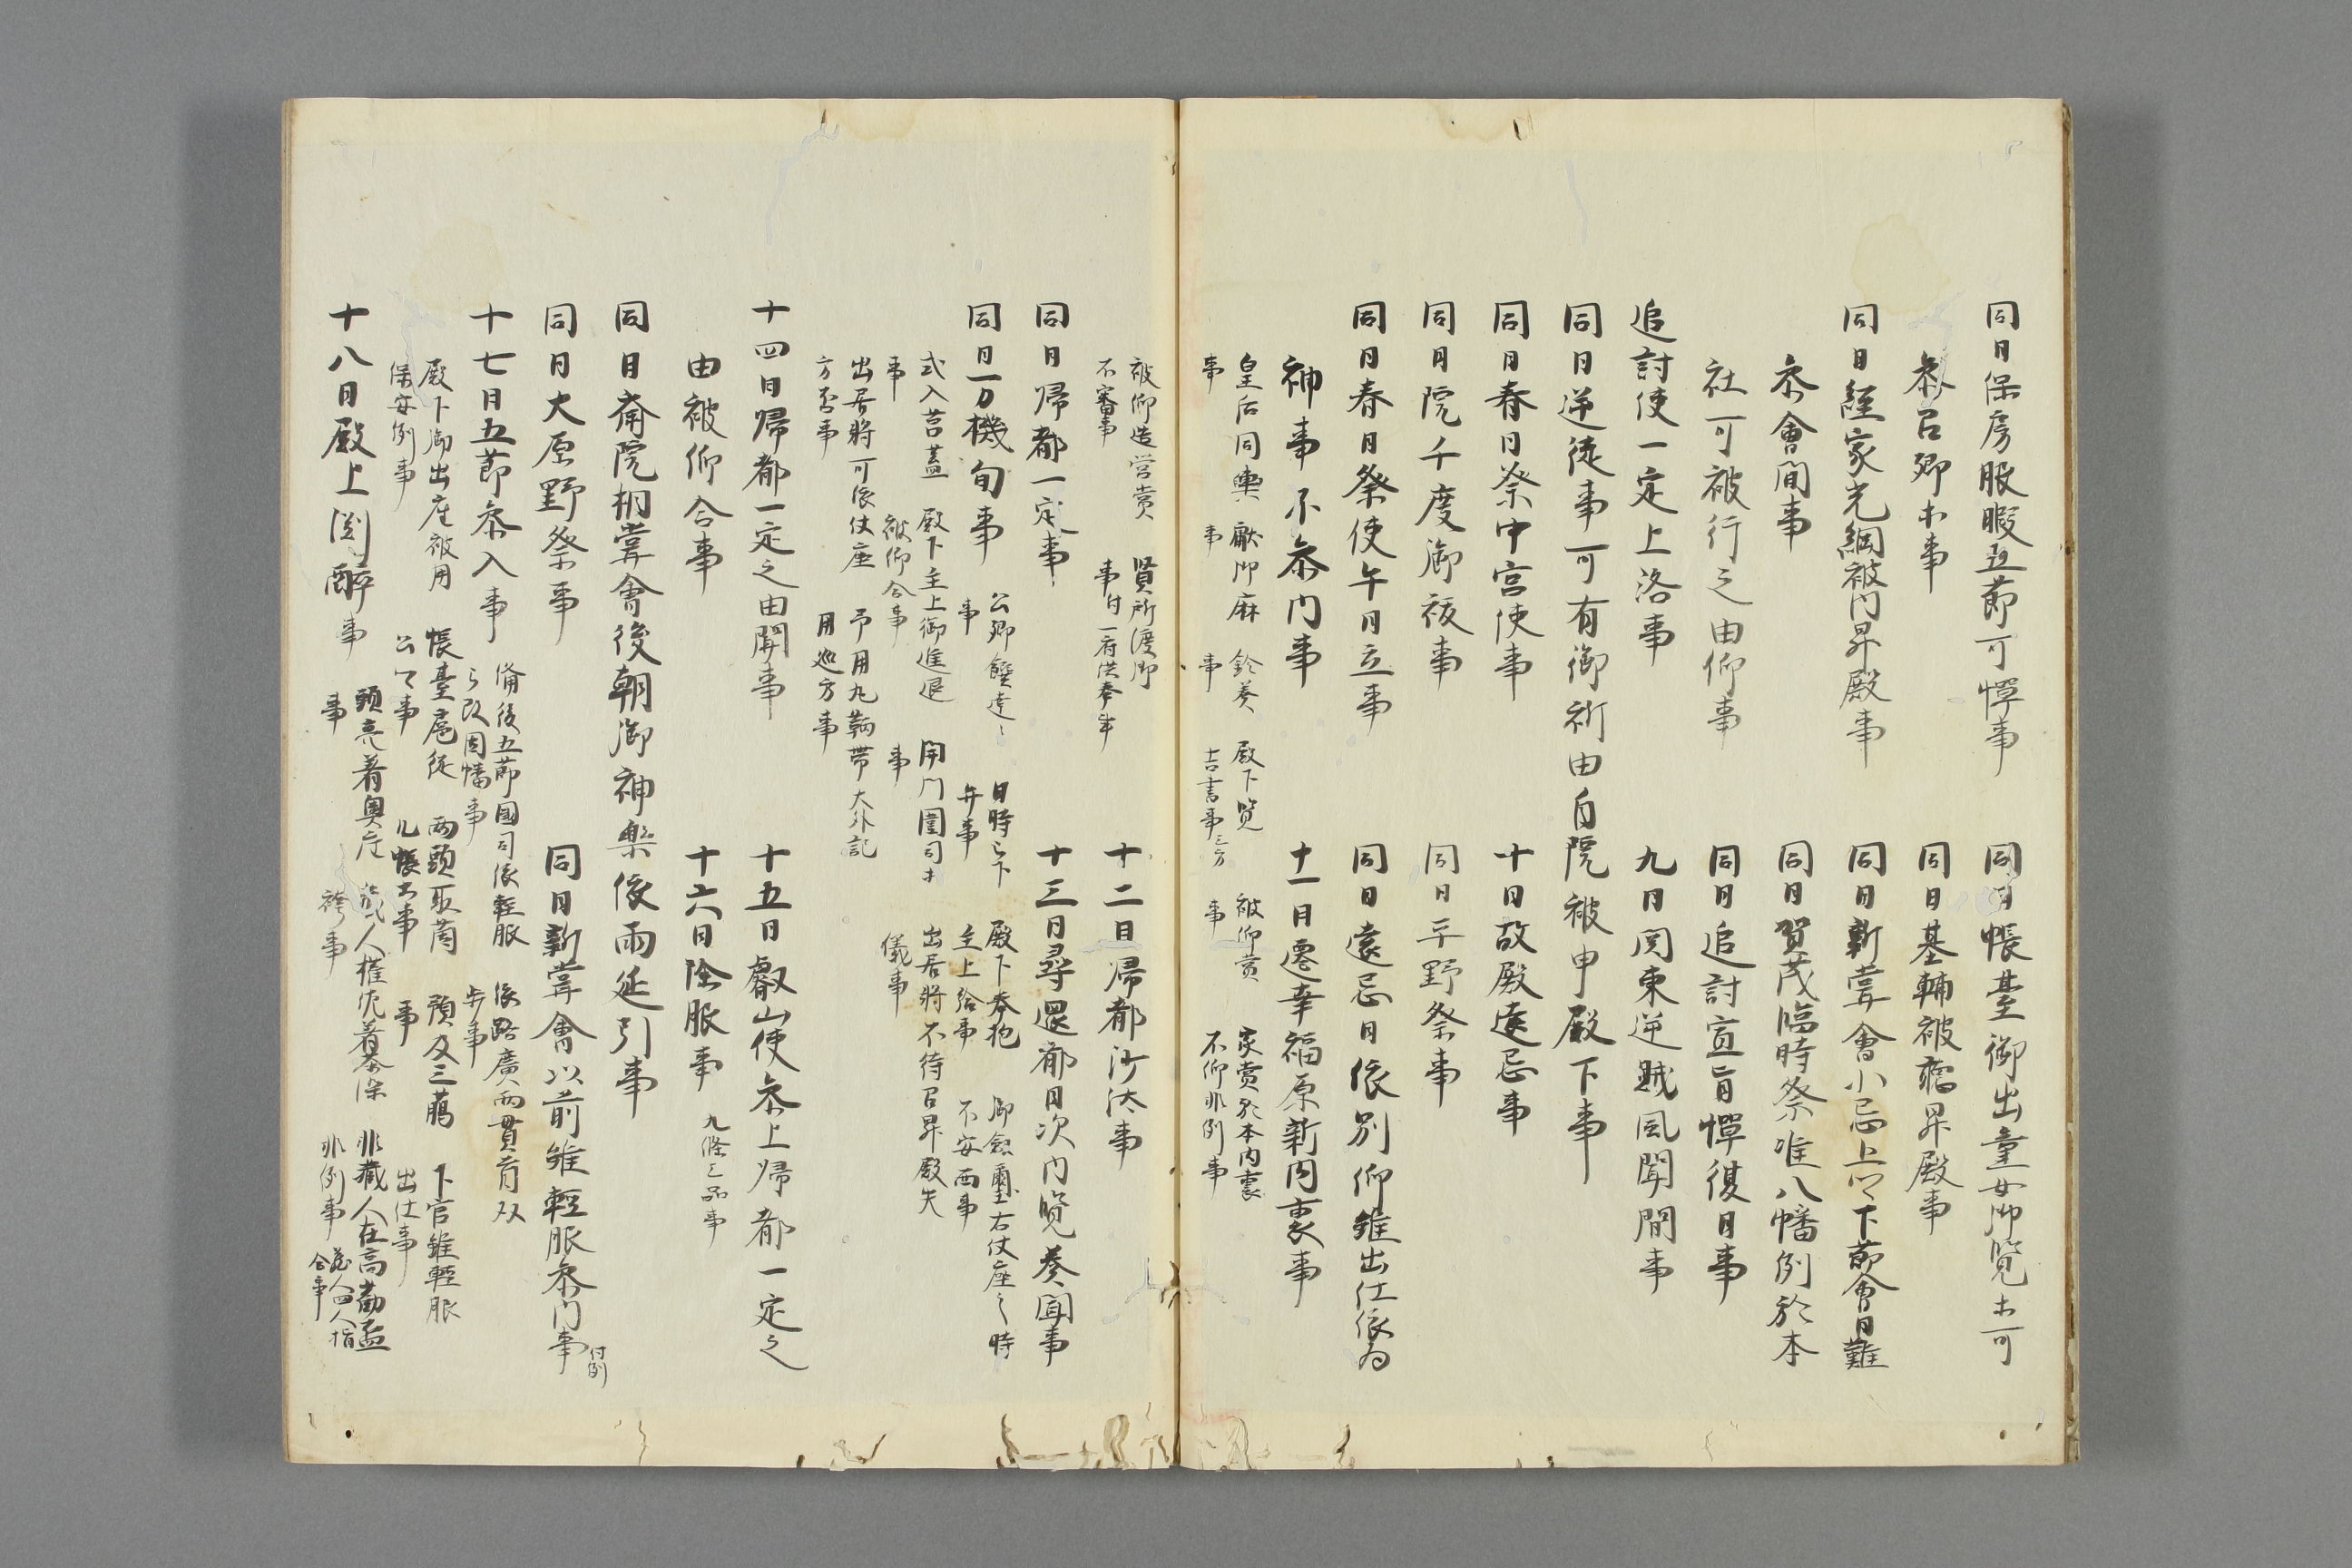 同日保房服暇五節可憚事
同日帳臺御出童女御覧ホ可
参召仰ホ事
同日基輔被聴昇殿事
同日経家光綱被内昇殿事
同日新嘗會小忌上以下節會日難
参會間事
同日賀茂臨時祭准八幡例於本
社可被行之由仰事
同日追討宣旨憚復日事
追討使一定上洛事
九日関東逆賊風聞間事
同日逆徒事可有御祈由自院被申殿下事
同日春日祭中宮使事
十日故殿遠忌事
同日院千度御祓事
同日平野祭事
同日春日祭使午日立事
同日遠忌日依別仰雖出仕依為
神事不参内事
十一日遷幸福原新内裏事
皇后同輿
事
獻御麻
事
鈴奏
事
殿下覧
吉書事三方
被仰賞
事
家賞於本内裏
不仰非例事
被仰造営賞
不審事
賢所渡御
事付一府供奉事
十二日帰都沙汰事
同日帰都一定事
十三日尋還都日次内覧奏聞事
同日万機旬事
公卿饌遅々
事
日時已下
弁事
殿下奉抱
主上給事
御劔璽右仗座之時
不安西事
式入莒蓋
事
殿下主上御進退
被仰合事
開門圍司ホ
事
出居将不待召昇殿失
儀事
出居将可依仗座
方否事
予用丸鞆帯大外記
用巡方事
十四日帰都一定之由聞事
十五日叡山使参上帰都一定之
由被仰合事
十六日除服事
九條三品事
同日斎院相嘗會後朝御神楽依雨延引事
同日大原野祭事
同日新嘗會以前雖軽服参内事
付例
十七日五節参入事
脩後五節國司依軽服
被改因幡事
依路廣両貫首双
歩事
殿下御出座被用
保安例事
帳臺扈従
公卿事
両頭取筒
几帳ホ事
頭及三﨟
事
下官雖軽服
出仕事
十八日殿上淵酔事
頭亮着奥座
事
蔵人権佐着
袴事
非蔵人在高勧盃
非例事
蔵人四人指
合事